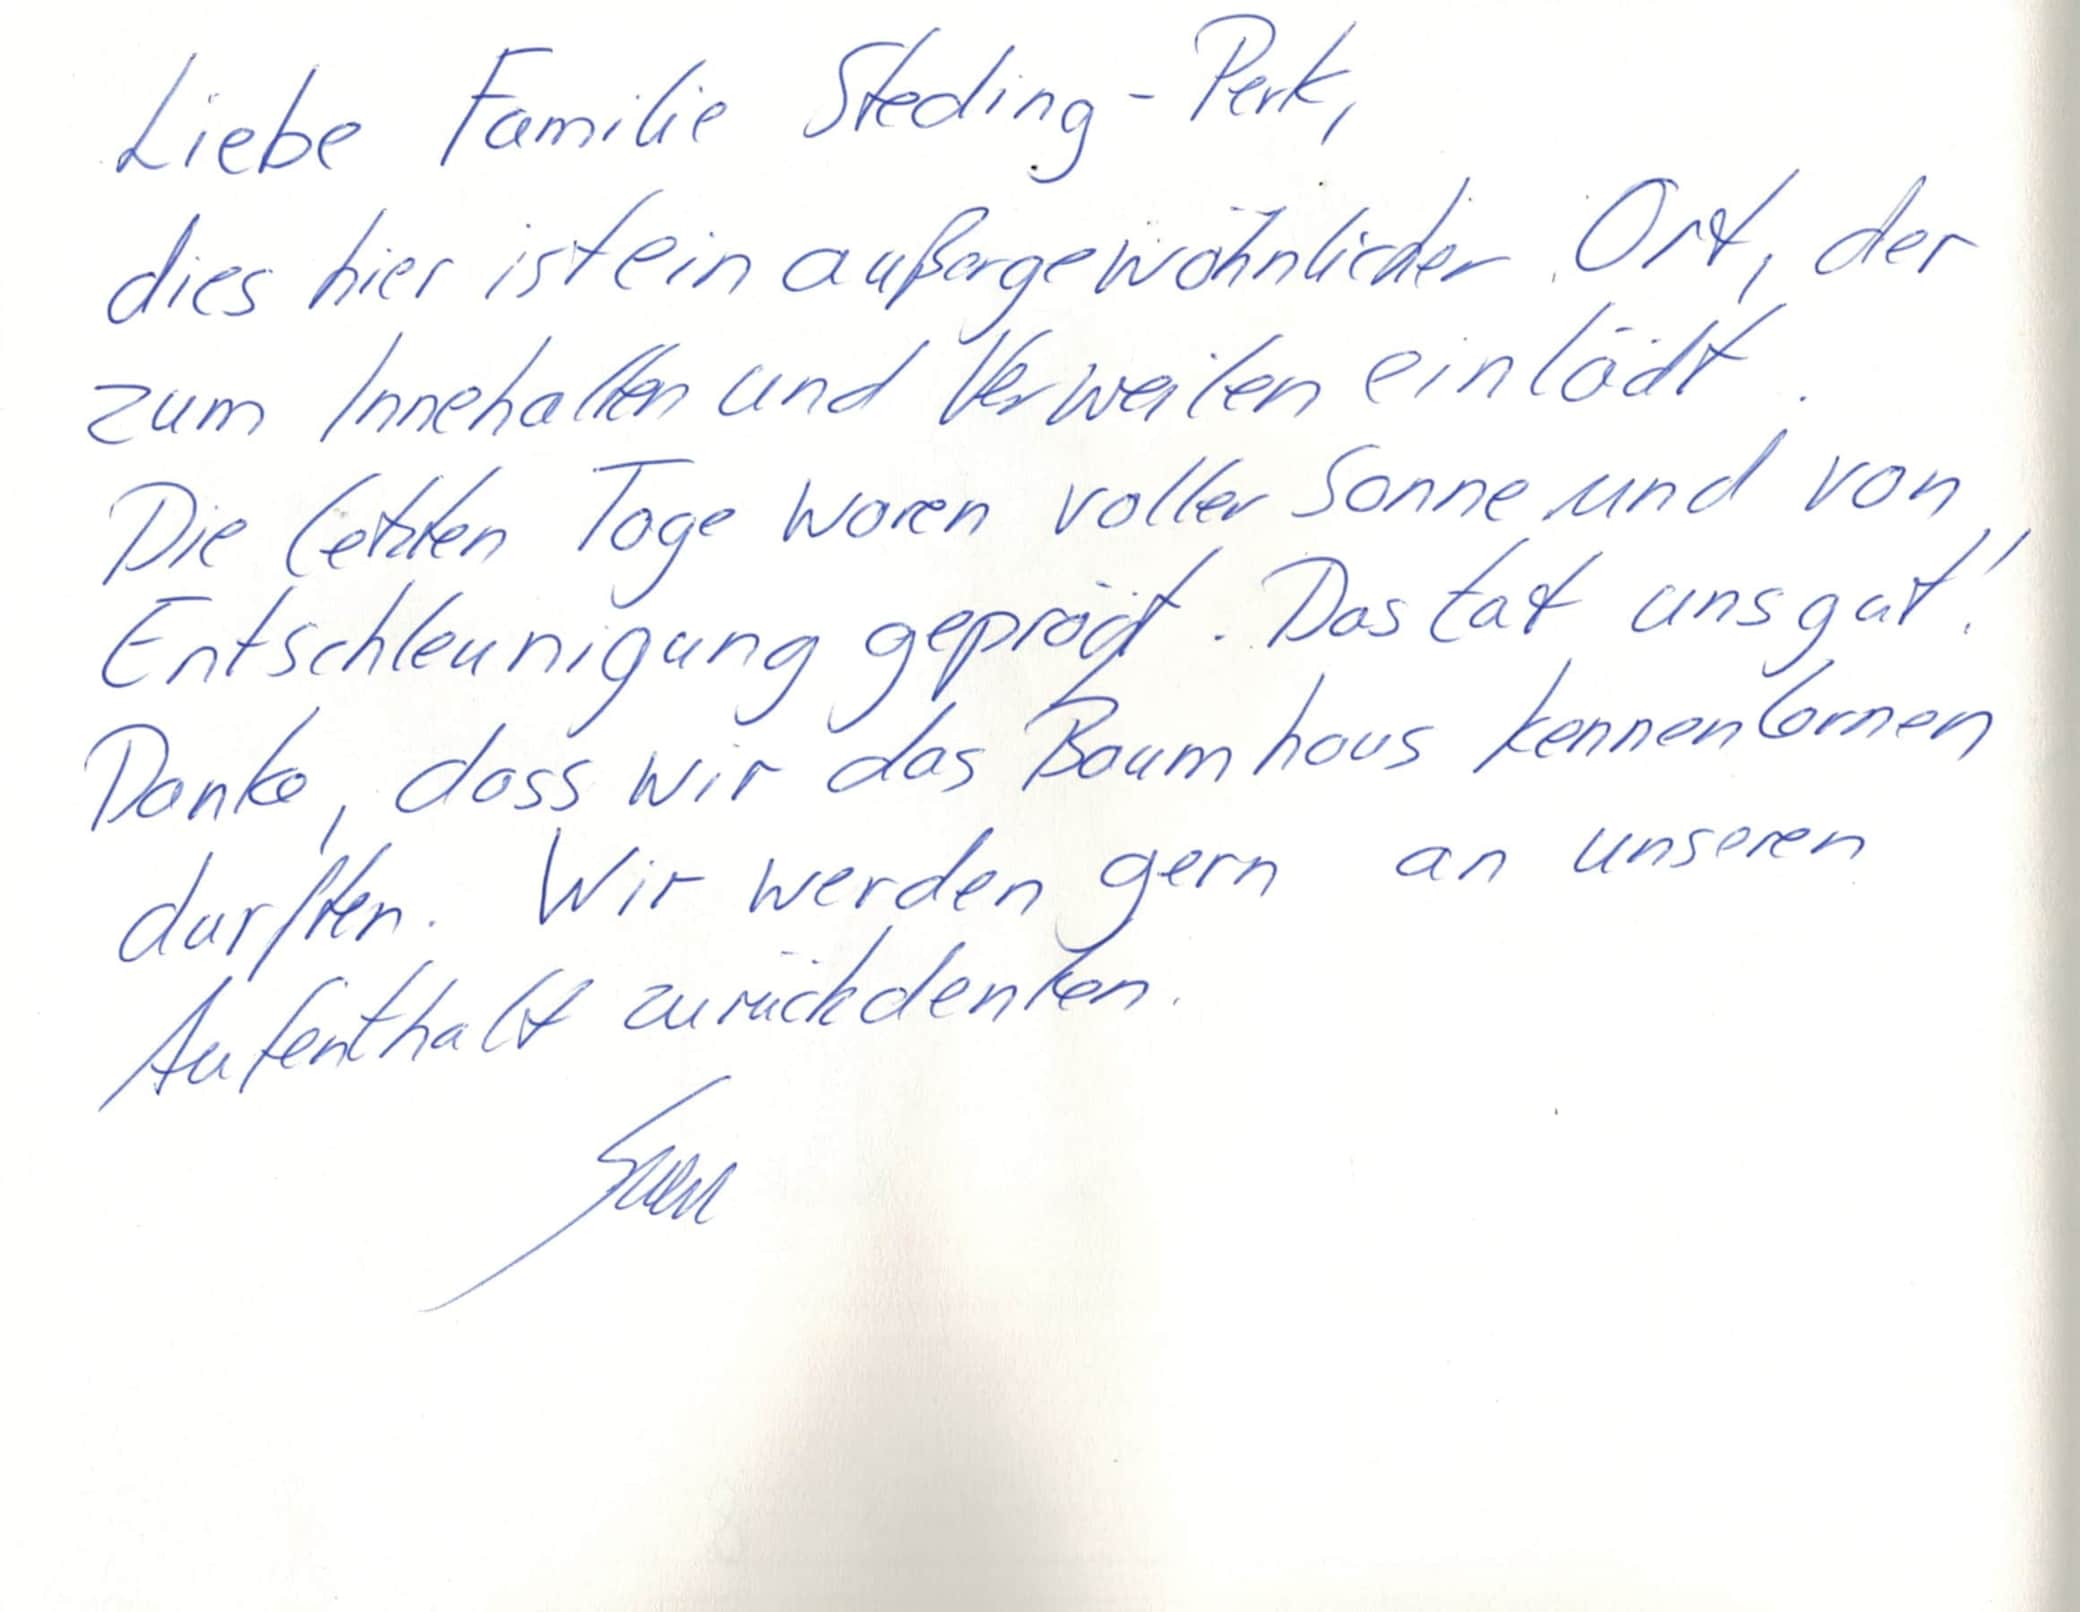 Liebe Familie Steding-Perk,
dies hier ist ein außergewöhnlicher Ort, der
zum Innehalten und Verweilen einlädt.
Die letzten Tage waren voller Sonne und von
Entschleunigung geprägt. Das tat uns gut!
Danke, dass wir das Baumhaus kennenlernen
durften. Wir werden gern an unseren
Aufenthalt zurückdenken.